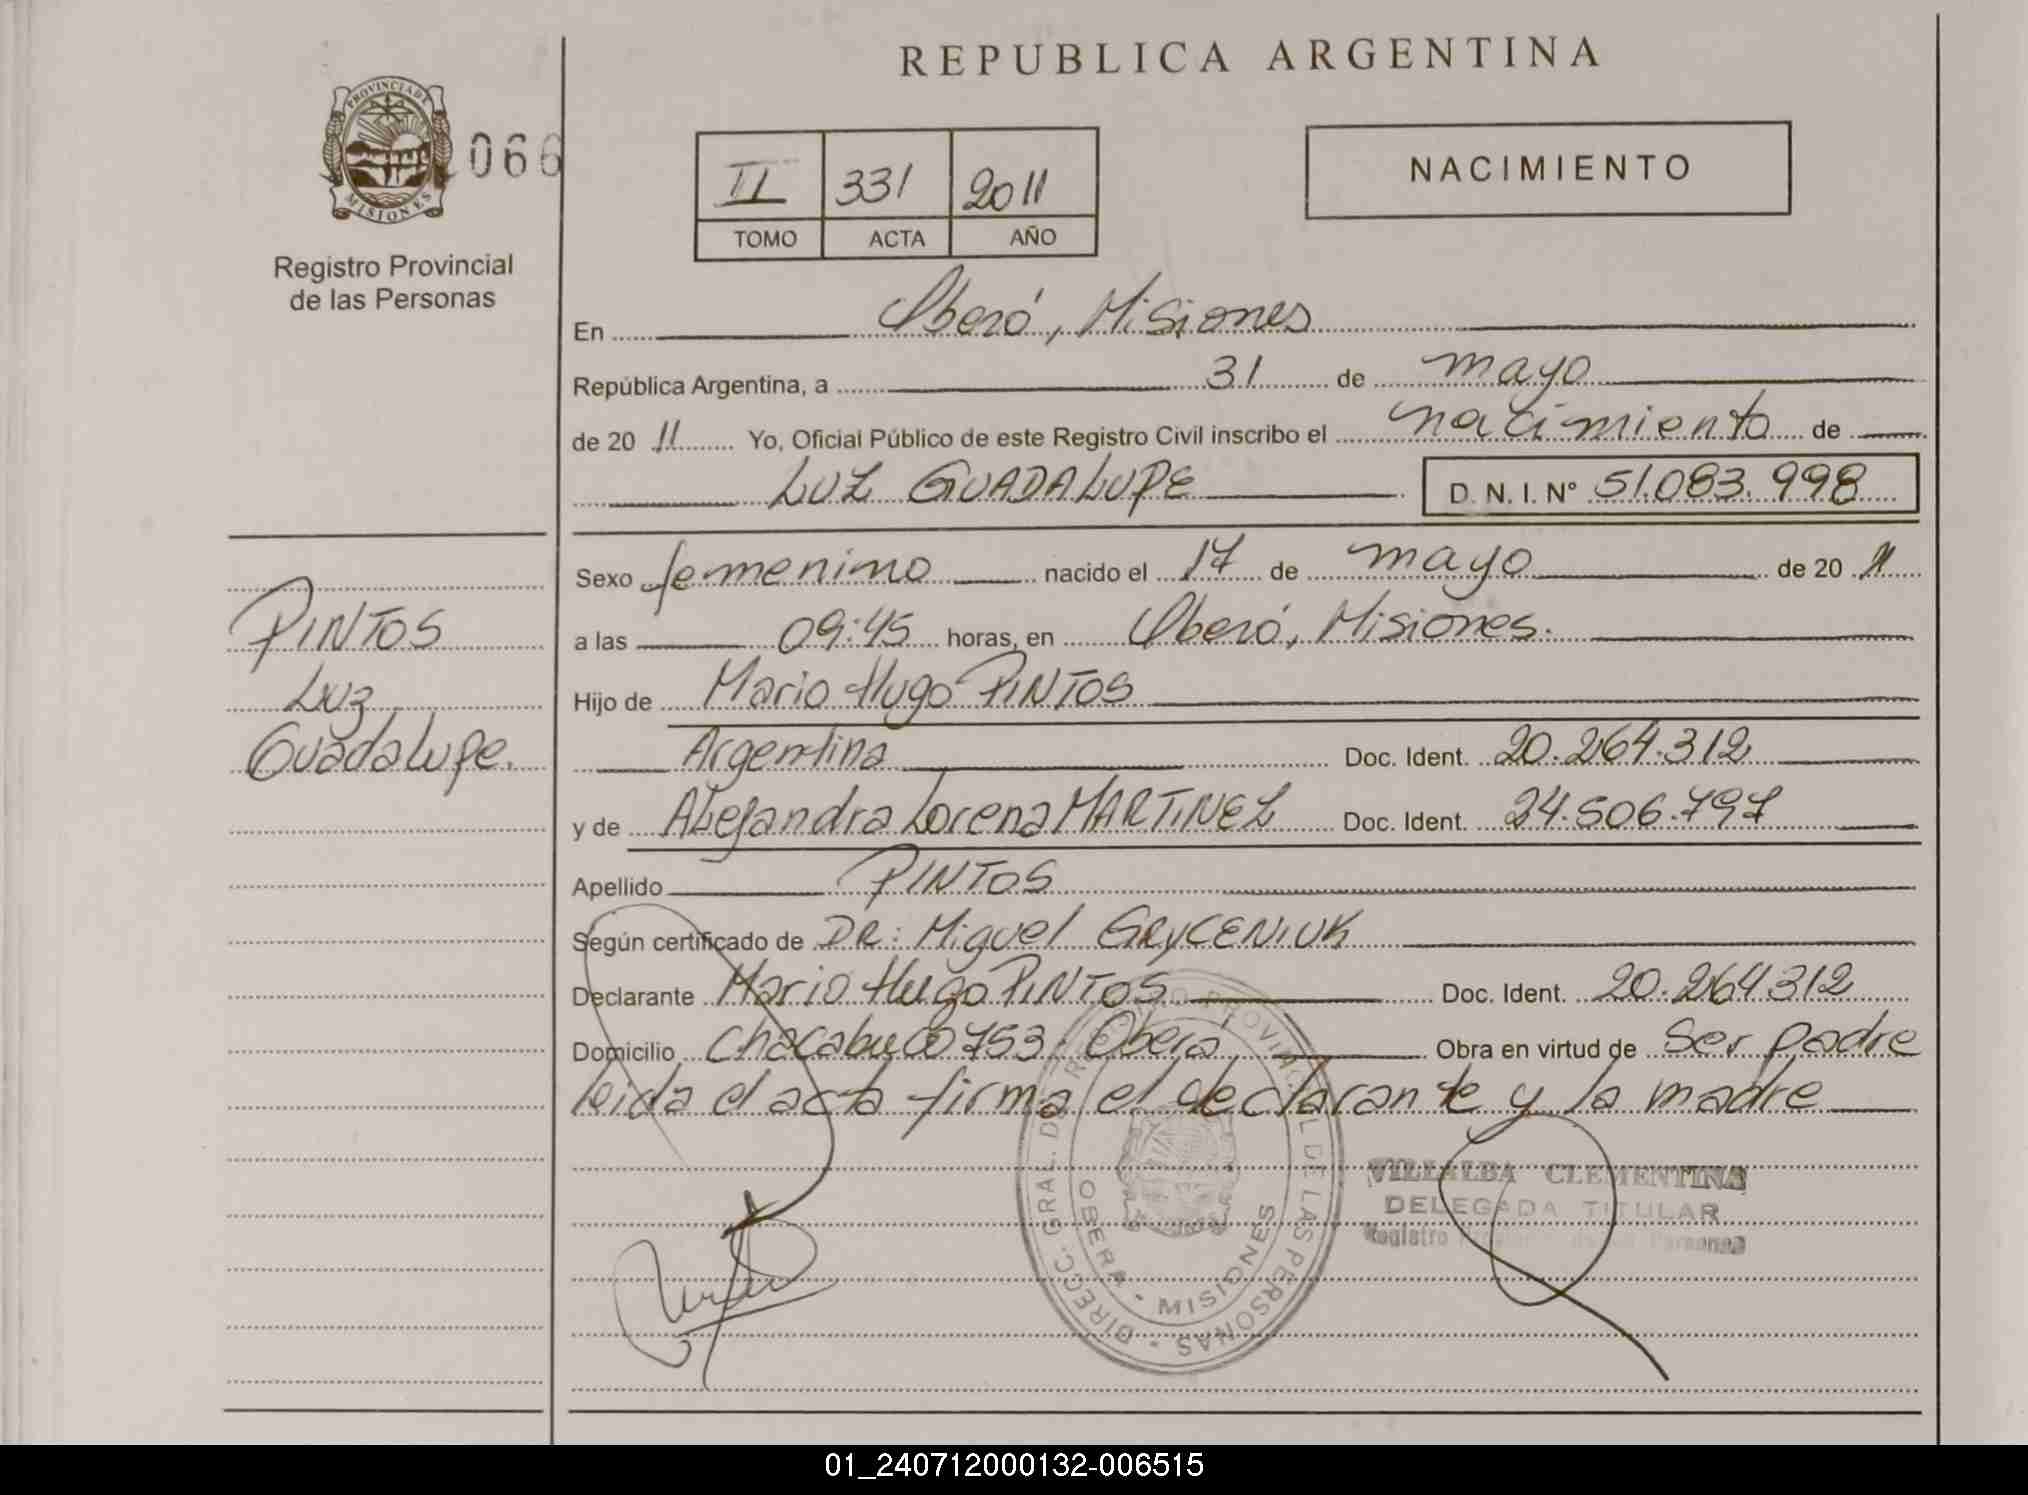 REPUBLICA ARGENTINA
PROVINCIA DE
MISIONES
066
Registro Provincial
de las Personas
II 331 2011
TOMO ACTA AÑO
NACIMIENTO
En Oberá, Misiones
República Argentina, a 31 de mayo
de 20 11 Yo, Oficial Público de este Registro Civil inscribo el nacimiento de
LUZ GUADALUPE D. N. I. Nº 51.083.998
Sexo femenino nacido el 17 de mayo de 20 11
a las 09:45 horas, en Oberá, Misiones.
Hijo de Mario Hugo PINTOS
Argentina Doc. Ident. 20.264.312
y de ALejandra Lorena MARTINEZ Doc. Ident. 24.506.797
Apellido PINTOS
Según certificado de DR: Miguel GRYCENIUK
Declarante Mario Hugo PINTOS Doc. Ident. 20.264312
Domicilio Chacabuco 753, Oberá, Obra en virtud de ser padre
leida el acta firma el declarante y la madre
PINTOS
Luz
Guadalupe.
DIRECC. GRAL. DE REGISTRO PROVINCIAL DE LAS PERSONAS
OBERA - MISIONES
VILLALBA CLEMENTINA
DELEGADA TITULAR
Registro Personas
01_240712000132-006515